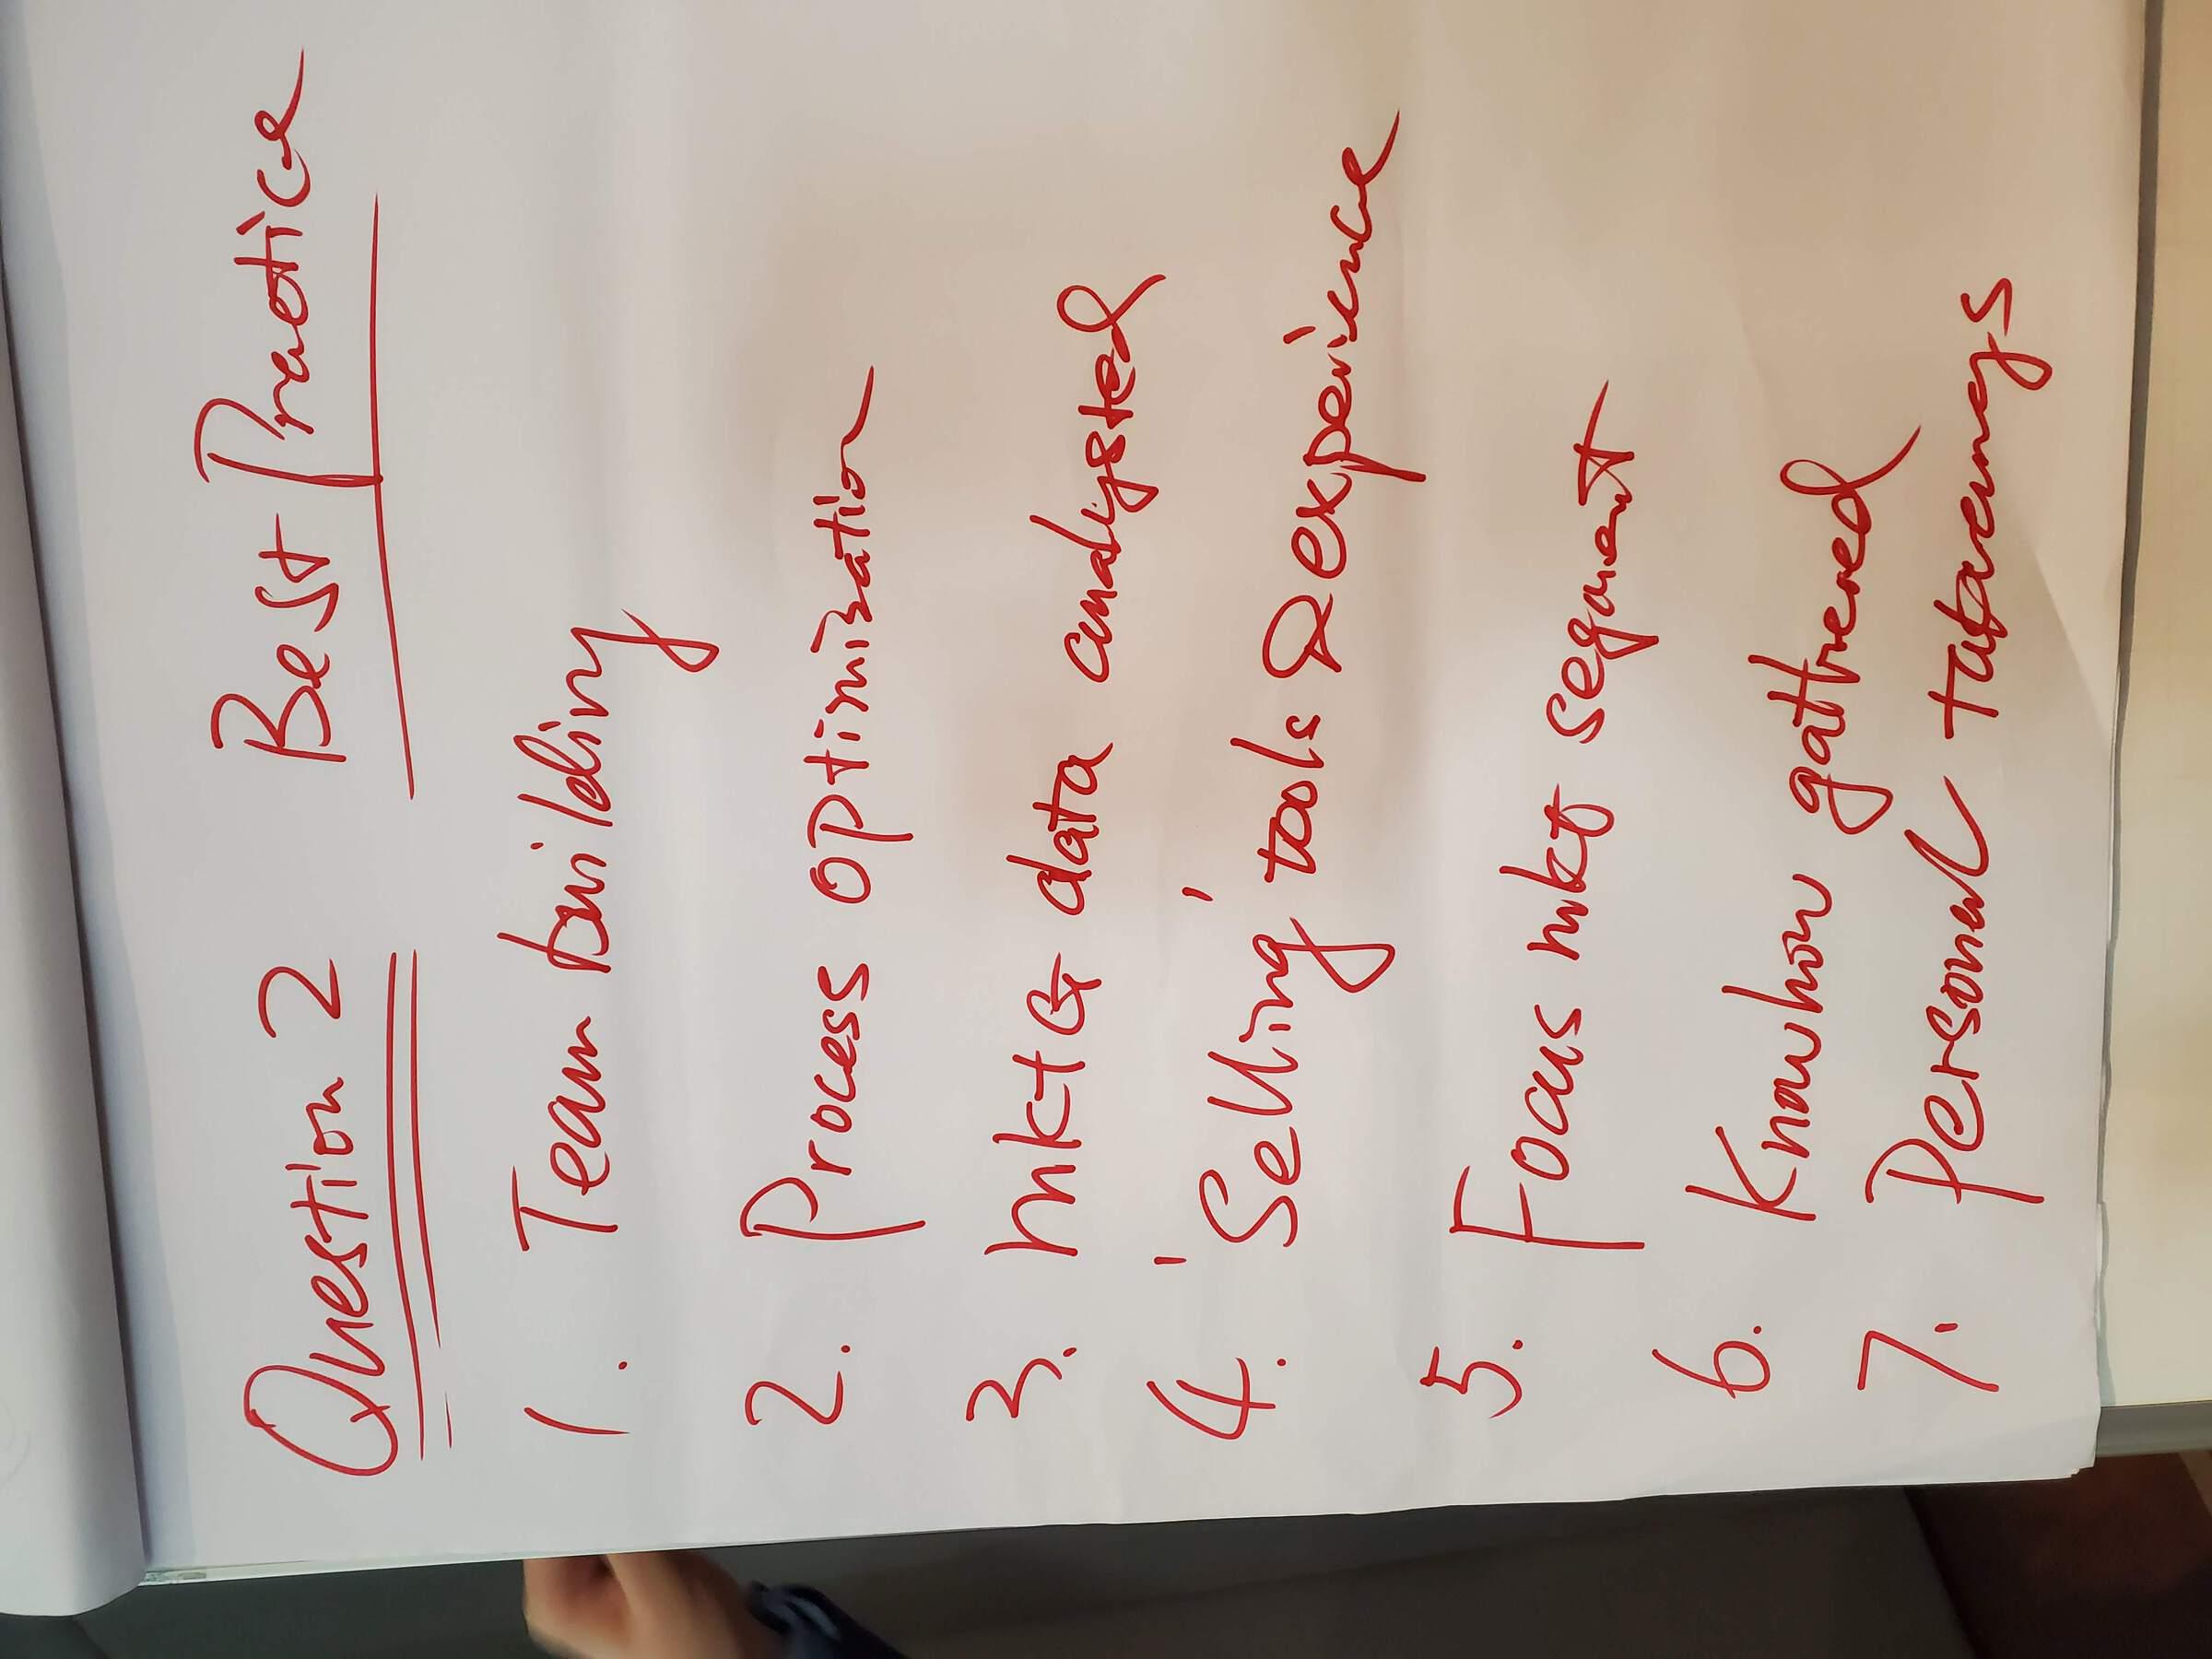 Question 2 Best Practice
1. Team building
2. Process optimization
3. mktG data analysted
4. 'Selling' tools & experience
5. Focus mkt segment
6. Knowhow gathered
7. Personal